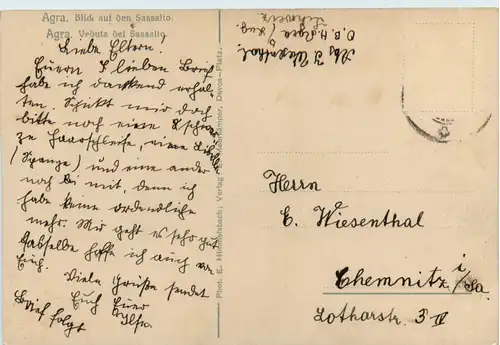 Agra. Blick auf den Sassalto.
Agra. Veduta del Sassalto.
Liebe Eltern.
Euern lieben Brief
habe ich dankend erhal-
ten. Schickt mir doch
bitte noch eine schwar-
ze Haarschleife, eine
(Spange) und eine andere
noch bei mit, denn ich
habe keine ordendliche
mehr. Mir geht es sehr gut
dasselbe hoffe ich auch von
Euch.
Viele Grüße sendet
Euch Eure
Ilse.
Brief folgt
Phot. E. Verlag Davos-Platz.
Abs. I. Wiesenthal
Agra / Lug.
Schweiz
Herrn
E. Wiesenthal
Chemnitz i/Sa.
Lotharstr. 3 IV